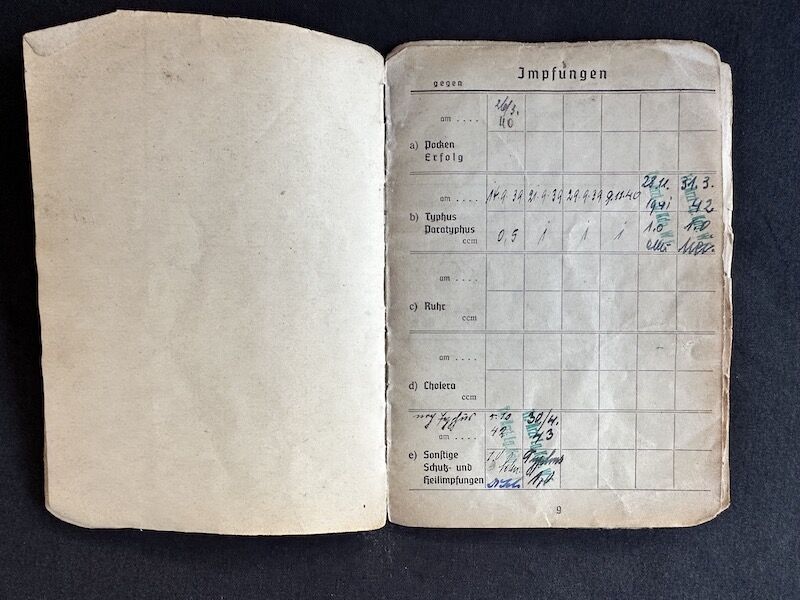 Impfungen
gegen
am . . . . 26/3. 40
a) Pocken
Erfolg
am . . . . 14.9.39 21.9.39 29.9.39 9.11.40 28.11. 1941 31.3. 42
b) Typhus
Paratyphus
ccm 0,5 1 1 1 1.0 1.0
am . . . .
c) Ruhr
ccm
am . . . .
d) Cholera
ccm
Typhus
am . . . . 42 30/4. 43
e) Sonstige
Schutz- und
Heilimpfungen
9